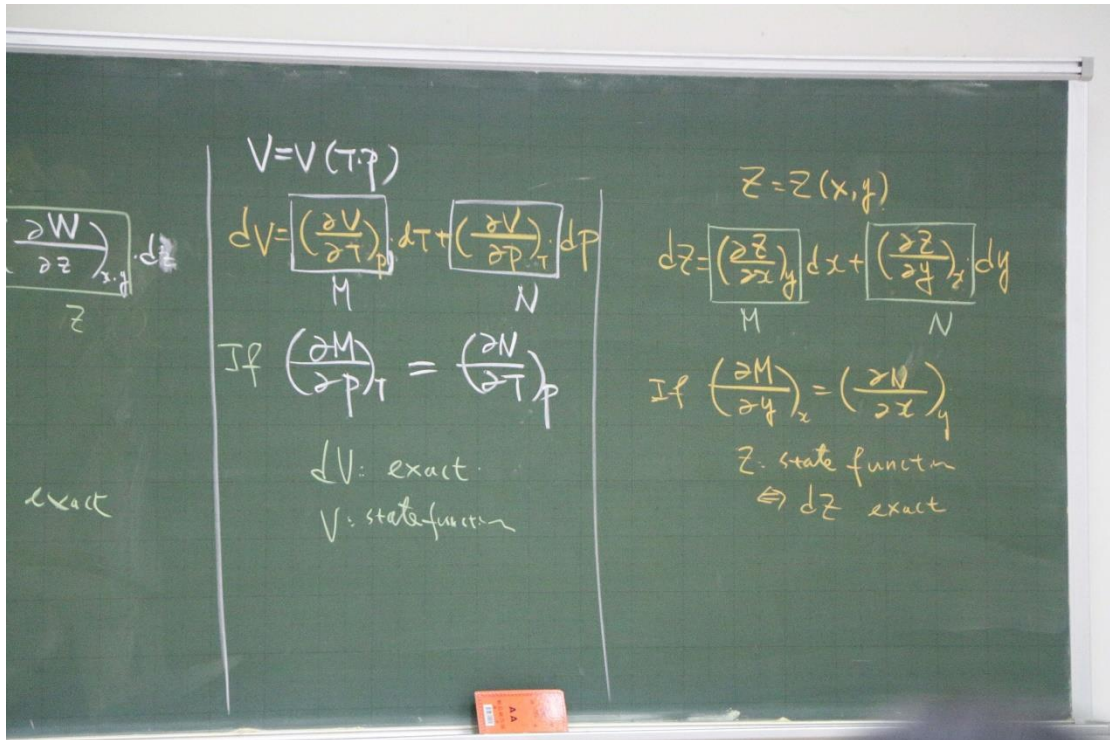 (∂W/∂z)x.y · dz
z
exact
V=V(T.p)
dV=(∂V/∂T)p · dT+(∂V/∂p)T · dp
M N
If (∂M/∂p)T = (∂N/∂T)p
dV: exact.
V: state function
Z=Z(x,y)
dZ=(∂Z/∂x)y dx+(∂Z/∂y)x · dy
M N
If (∂M/∂y)x=(∂N/∂x)y
Z: state function
⇔ dZ exact
AA